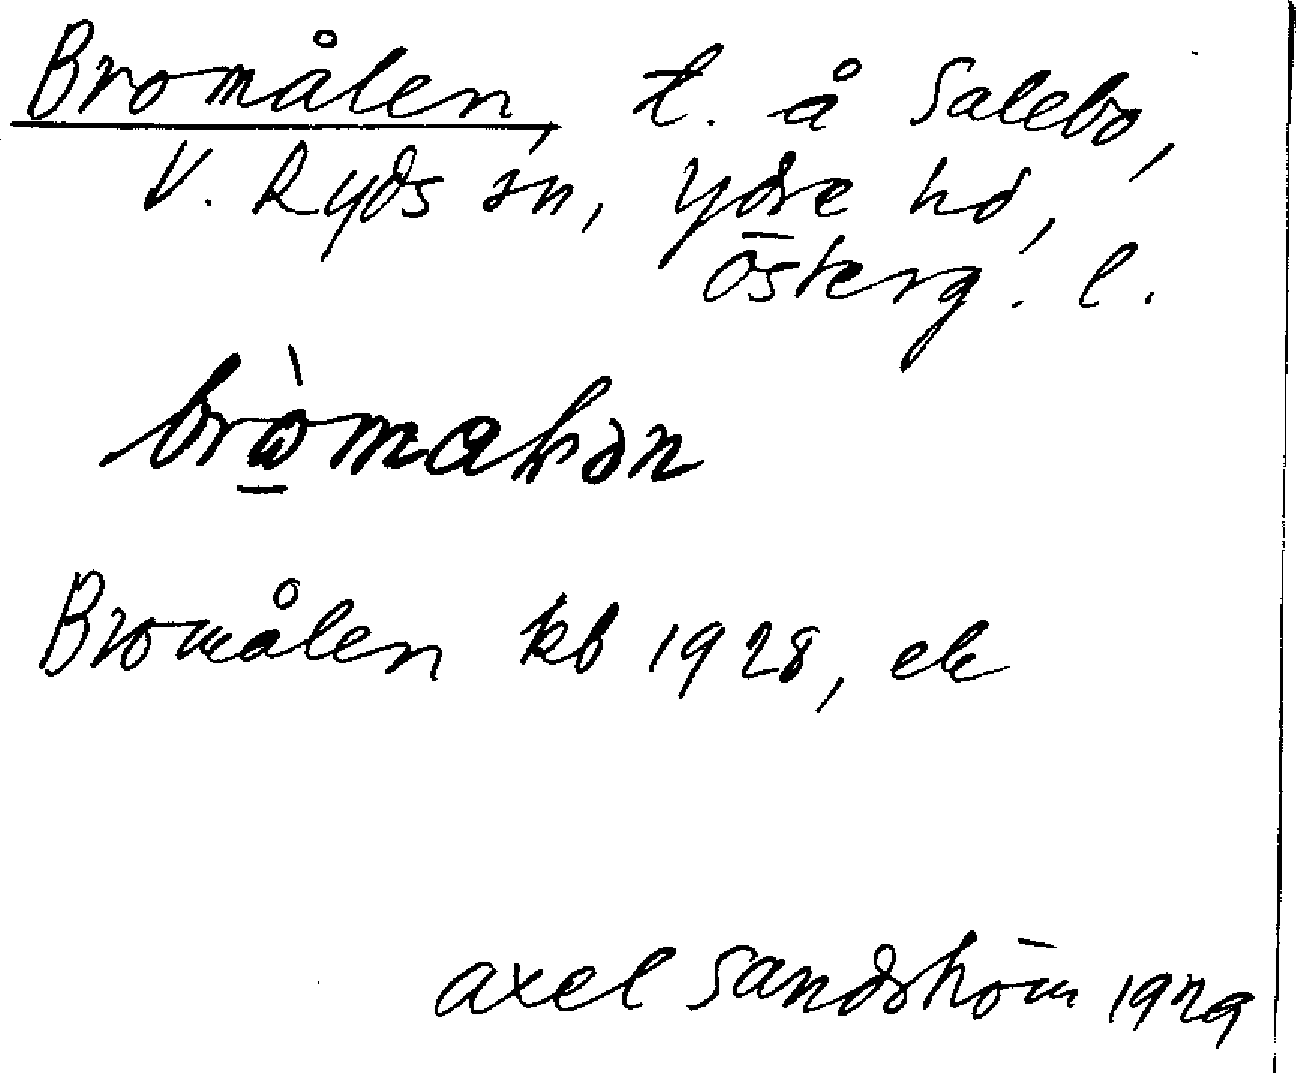 Bromålen, t. å Salebo,
V. Ryds sn, Ydre hd,
Österg. l.
Bromålen kb 1928, ek
Axel Sandström 1929